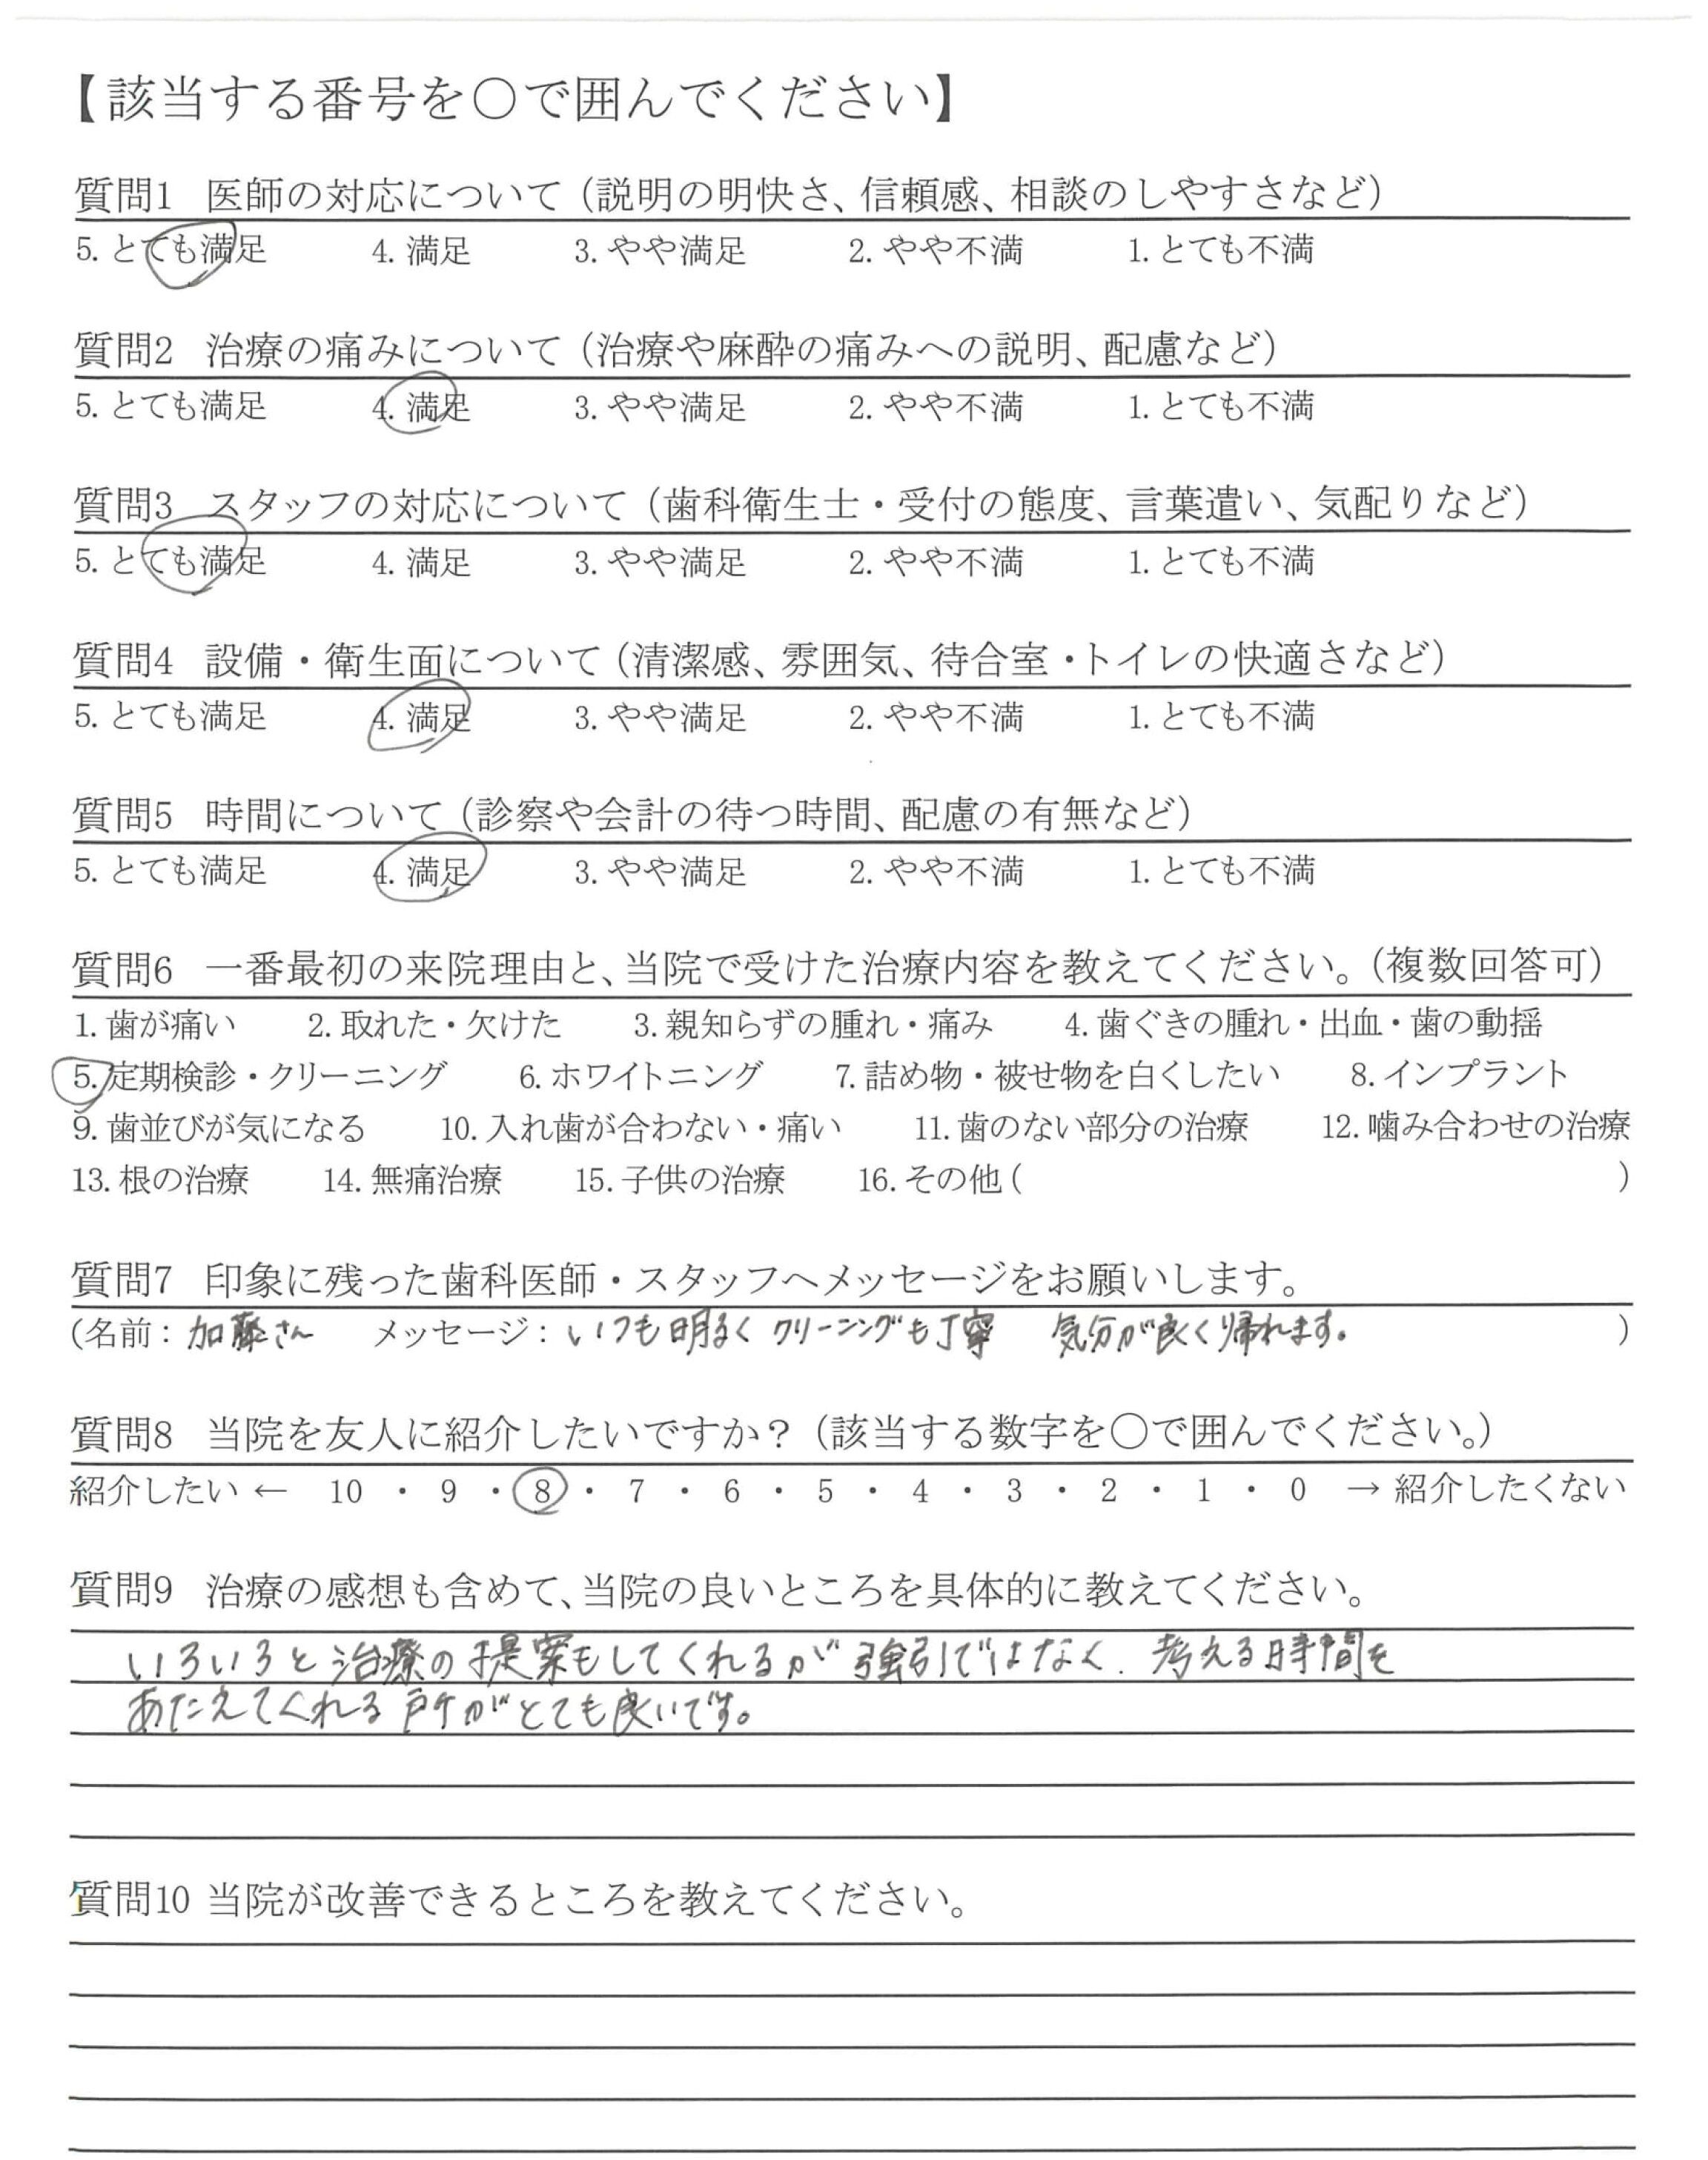 【該当する番号を○で囲んでください】
質問1 医師の対応について（説明の明快さ、信頼感、相談のしやすさなど）
5. とても満足 4. 満足 3. やや満足 2. やや不満 1. とても不満
質問2 治療の痛みについて（治療や麻酔の痛みへの説明、配慮など）
5. とても満足 4. 満足 3. やや満足 2. やや不満 1. とても不満
質問3 スタッフの対応について（歯科衛生士・受付の態度、言葉遣い、気配りなど）
5. とても満足 4. 満足 3. やや満足 2. やや不満 1. とても不満
質問4 設備・衛生面について（清潔感、雰囲気、待合室・トイレの快適さなど）
5. とても満足 4. 満足 3. やや満足 2. やや不満 1. とても不満
質問5 時間について（診察や会計の待つ時間、配慮の有無など）
5. とても満足 4. 満足 3. やや満足 2. やや不満 1. とても不満
質問6 一番最初の来院理由と、当院で受けた治療内容を教えてください。（複数回答可）
1. 歯が痛い 2. 取れた・欠けた 3. 親知らずの腫れ・痛み 4. 歯ぐきの腫れ・出血・歯の動揺
5. 定期検診・クリーニング 6. ホワイトニング 7. 詰め物・被せ物を白くしたい 8. インプラント
9. 歯並びが気になる 10. 入れ歯が合わない・痛い 11. 歯のない部分の治療 12. 噛み合わせの治療
13. 根の治療 14. 無痛治療 15. 子供の治療 16. その他（ ）
質問7 印象に残った歯科医師・スタッフへメッセージをお願いします。
（名前：加藤さん メッセージ：いつも明るく クリーニングも丁寧 気分が良く帰れます。 ）
質問8 当院を友人に紹介したいですか？（該当する数字を○で囲んでください。）
紹介したい ← 10 ・ 9 ・ 8 ・ 7 ・ 6 ・ 5 ・ 4 ・ 3 ・ 2 ・ 1 ・ 0 → 紹介したくない
質問9 治療の感想も含めて、当院の良いところを具体的に教えてください。
いろいろと治療の提案もしてくれるが強引ではなく、考える時間を
あたえてくれる所がとても良いです。
質問10 当院が改善できるところを教えてください。